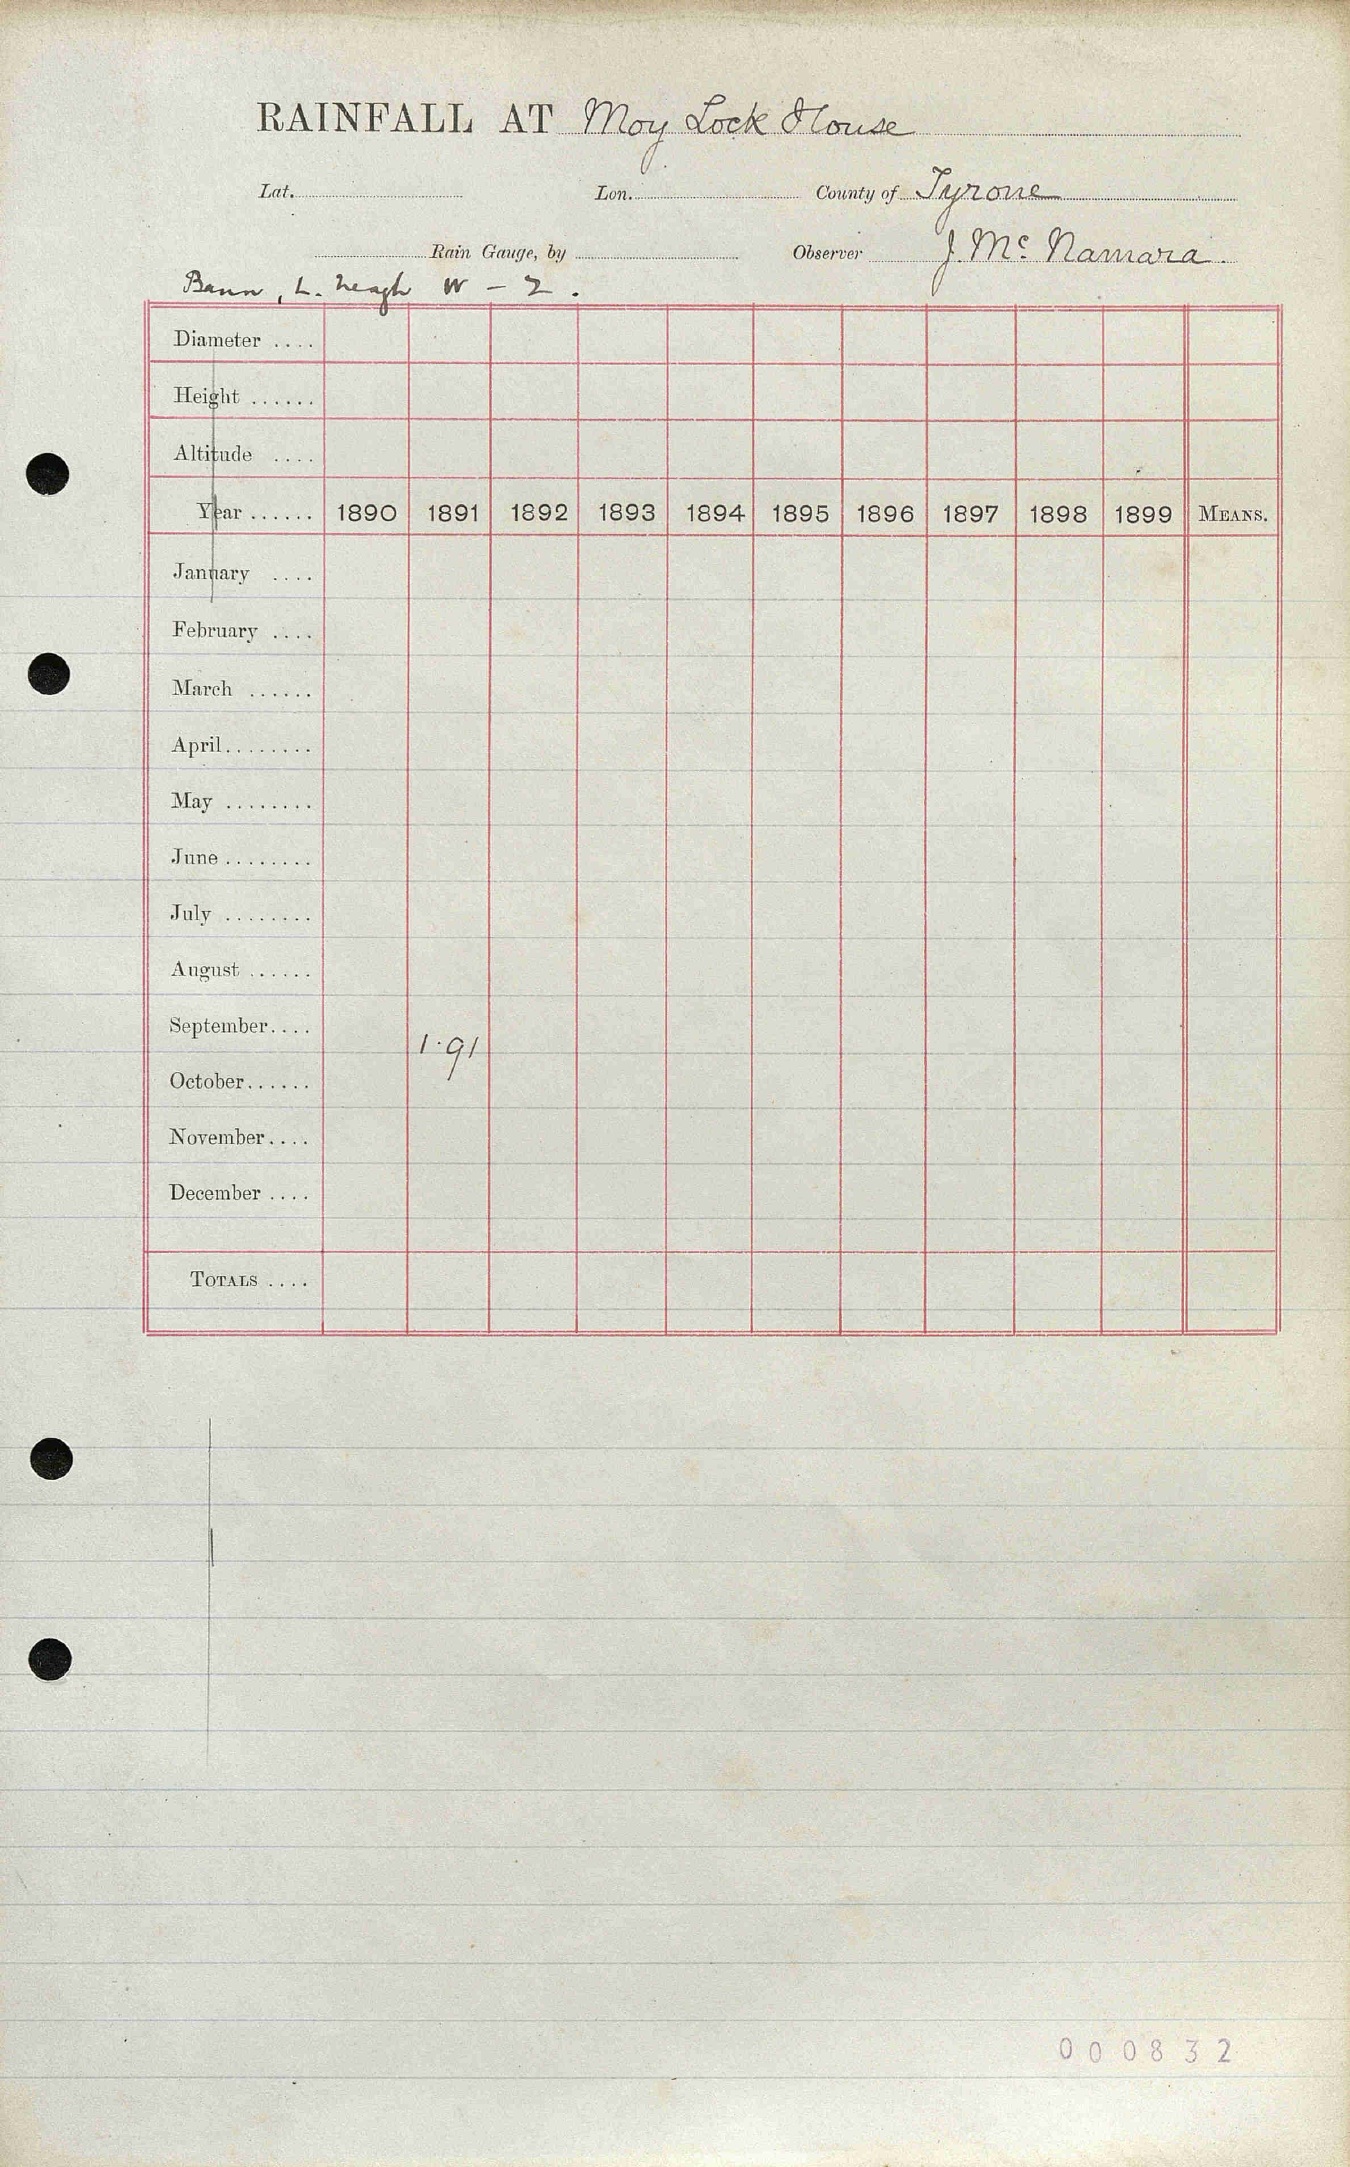 RAINFALL AT Moy Lock House
Lat. Lon. County of Tyrone
Rain Gauge, by Observer J. Mc Namara.
Bann, L. Neagh W – 2.
Diameter ....
Height ......
Altitude ....
Year ...... 1890 1891 1892 1893 1894 1895 1896 1897 1898 1899 MEANS.
January ....
February ....
March ......
April ........
May ........
June ........
July ........
August ......
September ....
1.91
October ......
November ....
December ....
TOTALS ....
000832